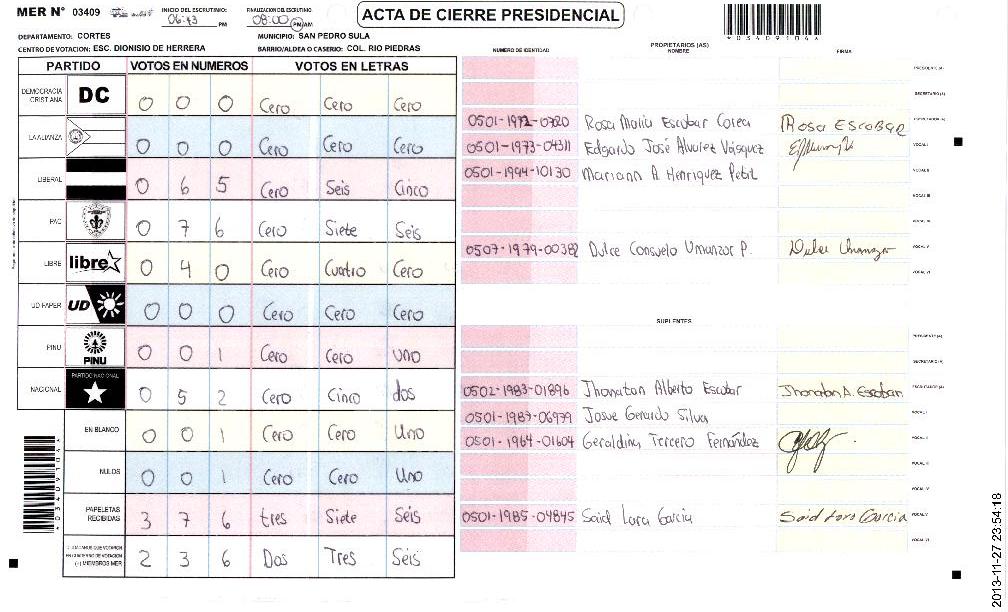 MER Nº 03409
INICIO DEL ESCRUTINIO: 06:43 PM
FINALIZACION DEL ESCRUTINIO 08:00 PM/AM
ACTA DE CIERRE PRESIDENCIAL
*03409104*
DEPARTAMENTO: CORTES
MUNICIPIO: SAN PEDRO SULA
CENTRO DE VOTACION: ESC. DIONISIO DE HERRERA
BARRIO/ALDEA O CASERIO: COL. RIO PIEDRAS
PARTIDO VOTOS EN NUMEROS VOTOS EN LETRAS
DEMOCRACIA CRISTIANA DC 0 0 0 Cero Cero Cero
LA ALIANZA 0 0 0 Cero Cero Cero
LIBERAL 0 6 5 Cero Seis Cinco
PAC 0 7 6 Cero Siete Seis
LIBRE libre 0 4 0 Cero Cuatro Cero
UD FAPER UD 0 0 0 Cero Cero Cero
PINU PINU 0 0 1 Cero Cero uno
NACIONAL PARTIDO NACIONAL 0 5 2 Cero Cinco dos
EN BLANCO 0 0 1 Cero Cero Uno
NULOS 0 0 1 Cero Cero Uno
PAPELETAS RECIBIDAS 3 7 6 tres Siete Séis
CIUDADANOS QUE VOTARON EN CUADERNO DE VOTACION (+) MIEMBROS MER 2 3 6 Dos Tres Séis
*03409104*
NUMERO DE IDENTIDAD
PROPIETARIOS (AS)
NOMBRE
FIRMA
PRESIDENTE (A)
SECRETARIO (A)
0501-1972-0720 Rosa Maria Escobar Corea Rosa ESCOBAR ESCRUTADOR (A)
0501-1973-04311 Edgardo José Alvarez Vásquez VOCAL I
0501-1994-10130 Mariann A Henriquez Petit VOCAL II
VOCAL III
VOCAL IV
0507-1979-00382 Dulce Consuelo Umanzor P. Dulce Umanzor VOCAL V
VOCAL VI
SUPLENTES
PRESIDENTE (A)
SECRETARIO (A)
0502-1983-01896 Jhonatan Alberto Escobar Jhonatan A. Escobar ESCRUTADOR (A)
0501-1987-06979 Josue Gerardo Silva VOCAL I
0501-1964-01604 Geraldina Tercero Fernández VOCAL II
VOCAL III
VOCAL IV
0501-1985-04845 Said Lara Garcia Said Lara Garcia VOCAL V
VOCAL VI
2013-11-27 23:54:18